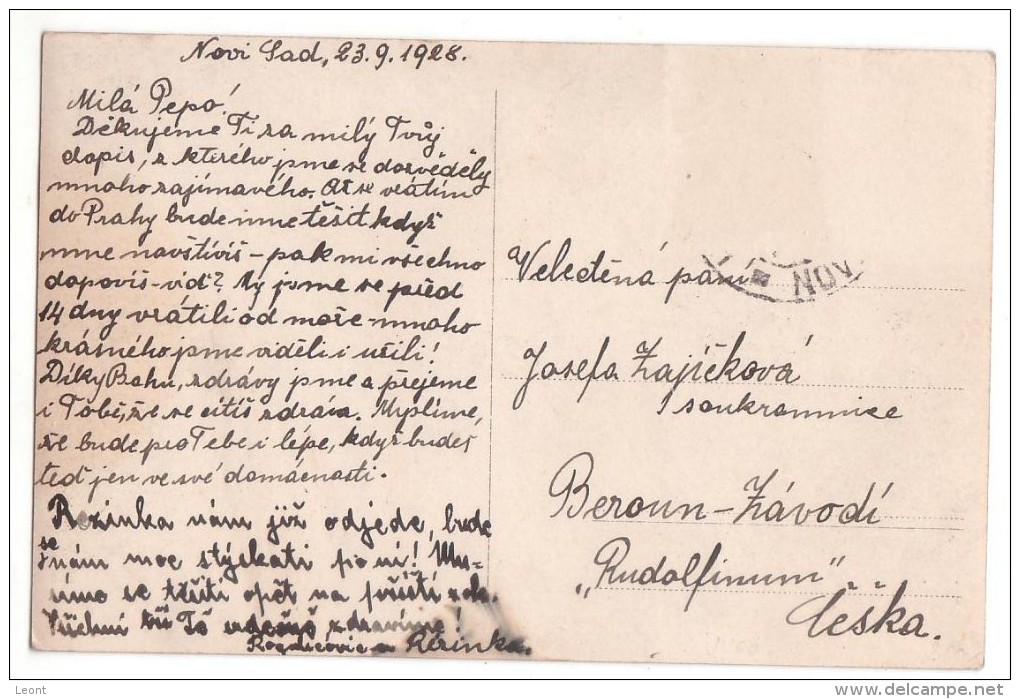 Novi Sad, 23.9.1928.
Milá Pepo!
Děkujeme Ti za milý Tvůj
dopis, z kterého jsme se dozvěděly
mnoho zajímavého. Až se vrátím
do Prahy bude mne těšit když
mne navštíviš - pak mi všechno
dopovíš - viď? My jsme se před
14 dny vrátili od moře - mnoho
krásného jsme viděli i užili!
Díky Bohu, zdrávy jsme a přejeme
i Tobě, že se cítíš zdráva. Myslíme,
že bude pro Tebe i lépe, když budeš
teď jen ve své domácnosti.
Rézinka nám již odjede, bude
se nám moc stýskati po ní! Mu-
síme se těšiti opět na příští rok.
Všichni Tě zdravíme!
a Rézinka.
Velectěná paní
Josefa Zajíčková
soukromnice
Beroun - Závodí
"Rudolfinum"..
Česka.
KON
Leont
delcampe.net